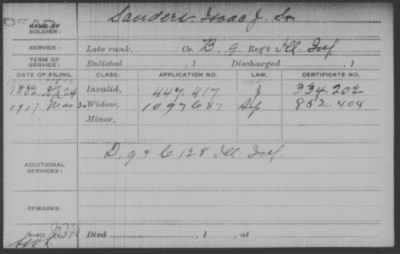 DEAD
NAME OF SOLDIER: Sanders, Isaac J. Sr
SERVICE: Late rank, Co. B. 9 Reg't Ill. Inf
TERM OF SERVICE: Enlisted , 1 Discharged , 1
DATE OF FILING. CLASS. APPLICATION NO. LAW. CERTIFICATE NO.
1882 Invalid, 447.417 J 334.202
1917 Widow, 1097687 852.404
Minor,
ADDITIONAL SERVICES: D. 9 & C 128 Ill. Inf.
REMARKS:
Died , 1 , at